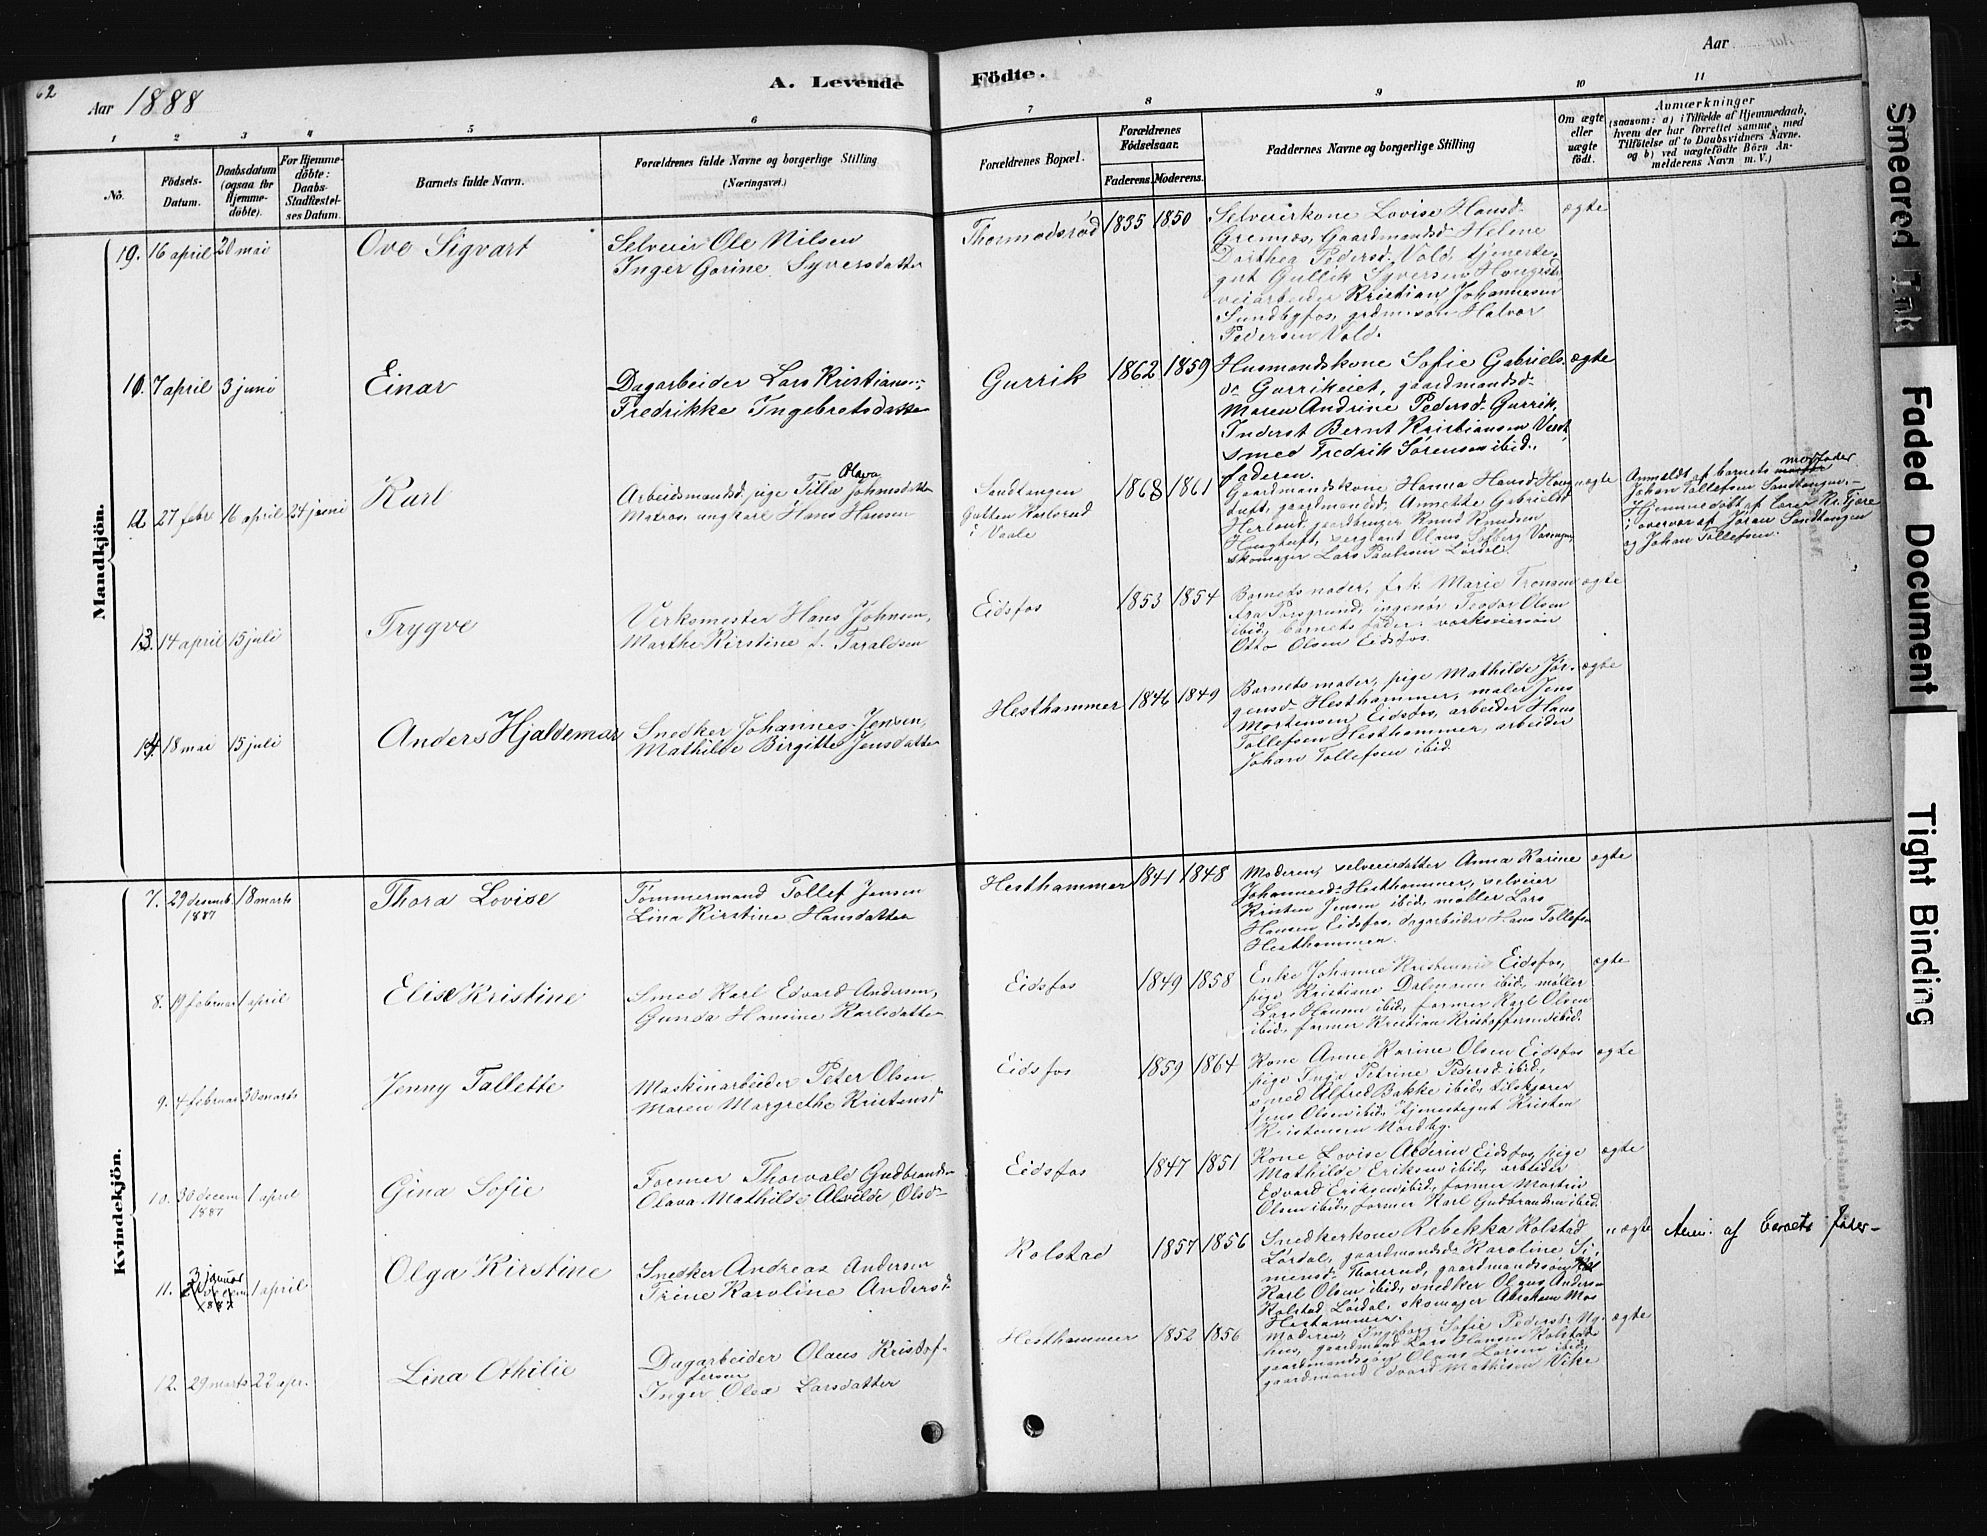 62
Aar 1888
A. Levende
Fødte.
Aar
1 2 3 4 5 6
7 8 9 10 11
No.
Fødsels-Datum.
Daabsdatum (ogsaa for Hjemmedøbte).
For Hjemmedøbte: Daabs-Stadfæstelses Datum.
Barnets fulde Navn.
Forældrenes fulde Navne og borgerlige Stilling
(Næringsvei.)
Forældrenes Bopæl.
Forældrenes Fødselsaar.
Faderens. Moderens.
Faddernes Navne og borgerlige Stilling
Om ægte eller uægte født.
Anmærkninger
(saasom: a) i Tilfælde af Hjemmedaab, hvem der har forrettet samme, med Tilføielse af to Daabsvidners Navne, og b) ved uægtefødte Börn Anmelderens Navn m. V.)
Mandkjön.
16 april 20 mai
Ove Sigvart
Selveier Ole Nilsen
Inger Gorine Syversdatter
Thormodsrød 1835 1850
Selveierkone Lovise Hansd-
Grennes, Gaardmandsd- Helene
Dorthea Pedersd. Vold, tjeneste-
gut Gullik Syversen
veiarbeider Kristian Johannesen
Sundbyfos, grdm.søn Halvor
Pedersen Vold.
ægte
7 april 3 juni
Einar
Dagarbeider Lars Kristiansen
Fredrikke Ingebretsdatter
Gurrik 1862 1859
Husmandskone Sofie Gabriels-
d- Gurrikeiet, gaardmandsd-
Maren Andrine Pedersd- Gurrik,
Inderst Bernt Kristiansen
smed Fredrik Sørensen ibid.,
faderen.
ægte
12. 27 febr 16 april 24 juni
Karl
Arbeidsmandsd. pige Tilla Olava Johnsdatter
Matros, ungkarl Hans Hansen
Sandtangen
i Vaale
1868 1861
Gaardmandskone Hanna Hansd
gaardmandsd. Annette Gabrielsd
gaardbruger Knud Knudsen
sergeant Olaus
skomager Lars Paulsen Lørdal.
uægte
Anmeldt af barnets morfader
Johan Tollefsen Sandtangen.-
Hjemmedøbt af
i overvær af Joran Sandtangen
og Johan Tollefsen.
13. 14 april 15 juli
Trygve
Verksmester Hans Johnsen,
Marthe Kirstine f. Taraldsen
Eidsfos
1853 1854
Barnets moder, frk. Marie Tronsen
fra Porsgrund, ingeniør Teodor Olsen
ibid, barnets fader,
Otto Olsen Eidsfos
ægte
14. 18 mai 15 juli
Anders Hjaldemar
Snedker Johannes Jensen,
Mathilde Birgitte Jensdatter
Hesthammer 1846 1849
Barnets moder, pige Mathilde Jør-
gensd- Hesthammer, maler Jens
Mortensen Eidsfos, arbeider Hans
Tollefsen Hesthammer, arbeider
Johan Tollefsen ibid.
ægte
Kvindekjön.
7. 29 desemb. 1887 18 marts
Thora Lovise
Tømmermand Tollef Jensen
Lina Kirstine Hansdatter
Hesthammer 1841 1848
Moderen, selveierdatter Anna Karine
Johannesd- Hesthammer, selveier
Kristen Jensen ibid, møller Lars
Hansen Eidsfos, dagarbeider Hans Tollefsen
Hesthammer.
ægte
8. 19 februar 1 april
Elise Kristine
Smed Karl Edvard Andersen,
Gunda Hansine Karlsdatter
Eidsfos 1849 1858
Enke Johanne Kristensen Eidsfos,
pige Kristiane Dalmann ibid, møller
Lars Hansen ibid, former Karl Olsen
ibid, former Kristian Kristoffersen ibid.
ægte
9. 4 februar 30 marts
Jenny Tallette
Maskinarbeider Peter Olsen
Maren Margrethe Kristensd
Eidsfos 1859 1864
Kone Anne Karine Olsen Eidsfos
pige Inga Petrine Pedersd ibid,
smed Alfred Bakke ibid,
Jens Olsen ibid, tjenestegut Kristen
Kristensen Nordby.
ægte
10. 30 decem 1887 1 april
Gina Sofie
Former Thorvald Gudbrands-
Olava Mathilde Alvilde Olsd-
Eidsfos 1847 1851
Kone Lovise Eidsfos, pige
Mathilde Eriksen ibid, arbeider
Edvard Eriksen ibid, former Martin
Olsen ibid, former Karl Gudbrandsen ibid.
ægte
11. 3 januar 1 april
Olga Kirstine
Snedker Andreas Andersen
Trine Karoline Andersd
Kolstad 1857 1856
Snedkerkone Rebekka Kolstad
Lørdal, gaardmandsd- Karoline Si-
mensd- Thorerud, gaardmandssøn
Karl Olsen ibid, snedker Olaus Andersen
Kolstad, Lørdal, skomager Abraham
Hesthammer.
uægte
af Barnets Fader-
12. 29 marts 22 apr.
Lina Othilie
Dagarbeider Olaus Kristof-
fersen
Inger Olea Larsdatter
Hesthammer 1852 1856
Moderen, Ingeborg Sofie Pedersd- Ny-
hus, gaardmand Lars Hansen Kolstad
gaardmandssøn Olaus Larsen ibid,
gaardmand Edvard Mathisen Vike
ægte
Smeared Ink
Faded Document
Tight Binding